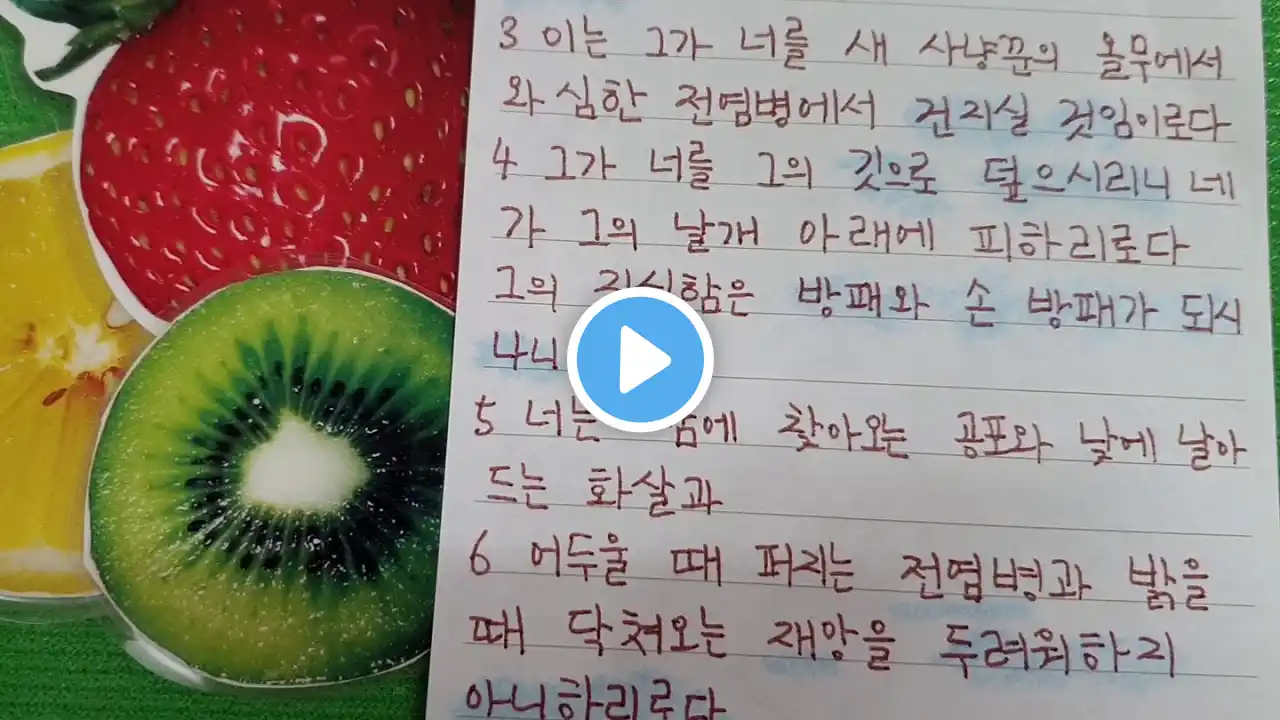 3 이는 그가 너를 새 사냥꾼의 올무에서
와 심한 전염병에서 건지실 것임이로다
4 그가 너를 그의 깃으로 덮으시리니 네
가 그의 날개 아래에 피하리로다
그의 진실함은 방패와 손 방패가 되시
나니
5 너는 찾아오는 공포와 낮에 날아
드는 화살과
6 어두울 때 퍼지는 전염병과 밝을
때 닥쳐오는 재앙을 두려워하지
아니하리로다